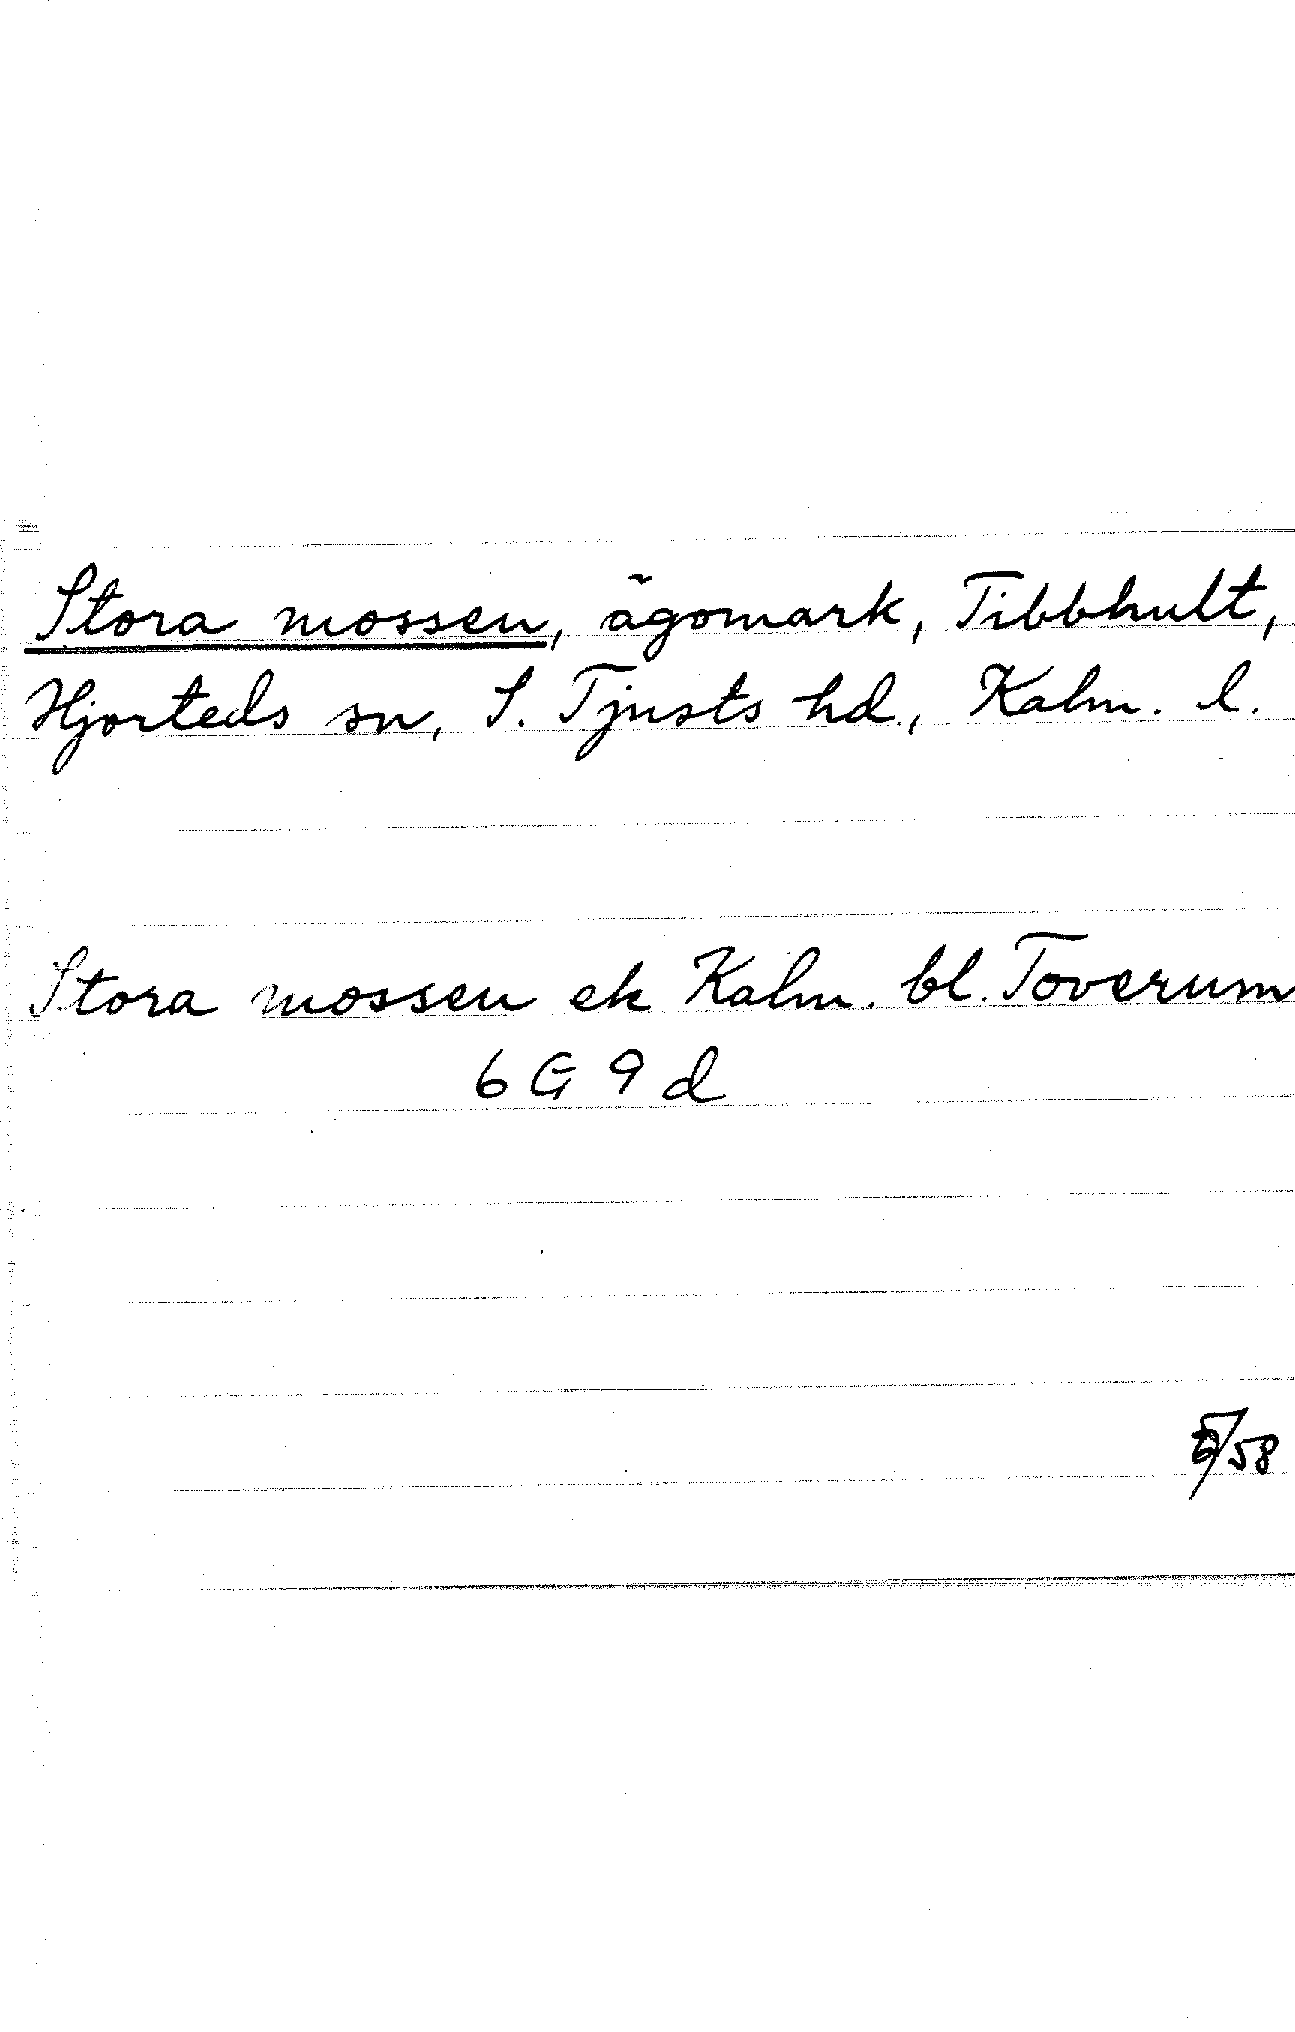 Stora mossen, ägomark, Tibbhult,
Hjorteds sn, S. Tjusts hd., Kalm. l.
Stora mossen ek Kalm. bl. Toverum
6 G 9 d
/58